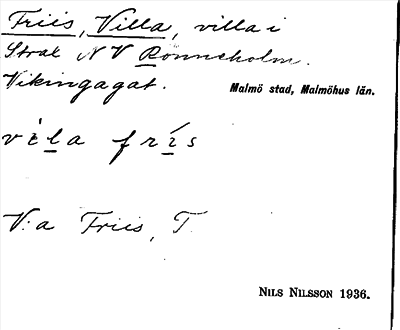 Friis, Villa, villa i
Strax N V Rönneholm.
Vikingagat.
Malmö stad, Malmöhus län.
vila frís
V:a Friis, T.
NILS NILSSON 1936.